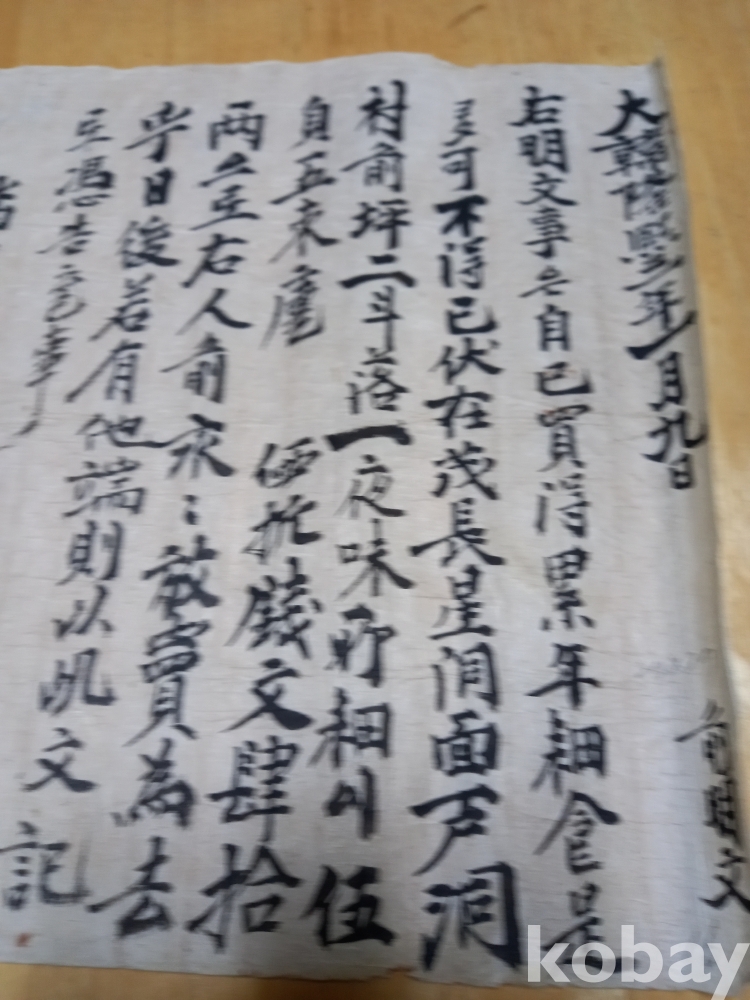 大韓隆熙年一月九日 前明文
右明文事自己買得累年耕食是
可不得已伏在茂長星洞面芦洞
村前坪二斗落一夜味耕以伍
負五束庫 価折錢文肆拾
両右人前永〻放賣為去
乎日後若有他端則以此文記
憑告事
kobay